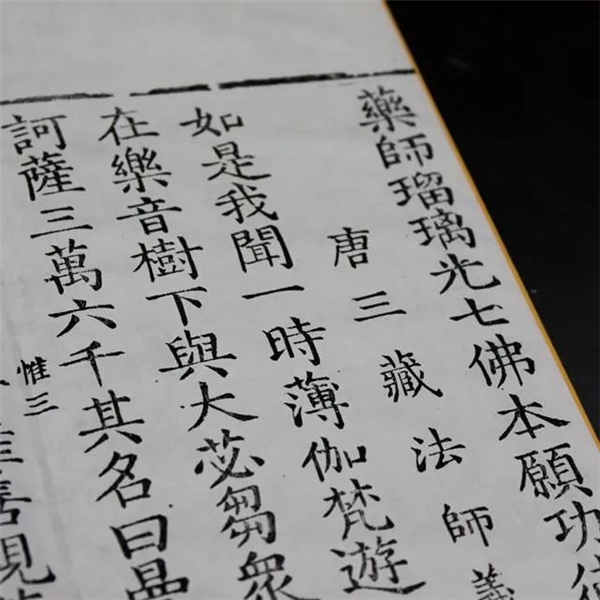 藥師瑠璃光七佛本願功
唐三藏法師義
如是我聞一時薄伽梵遊
在樂音樹下與大苾芻眾
訶薩三萬六千其名曰曼
惟三
善現